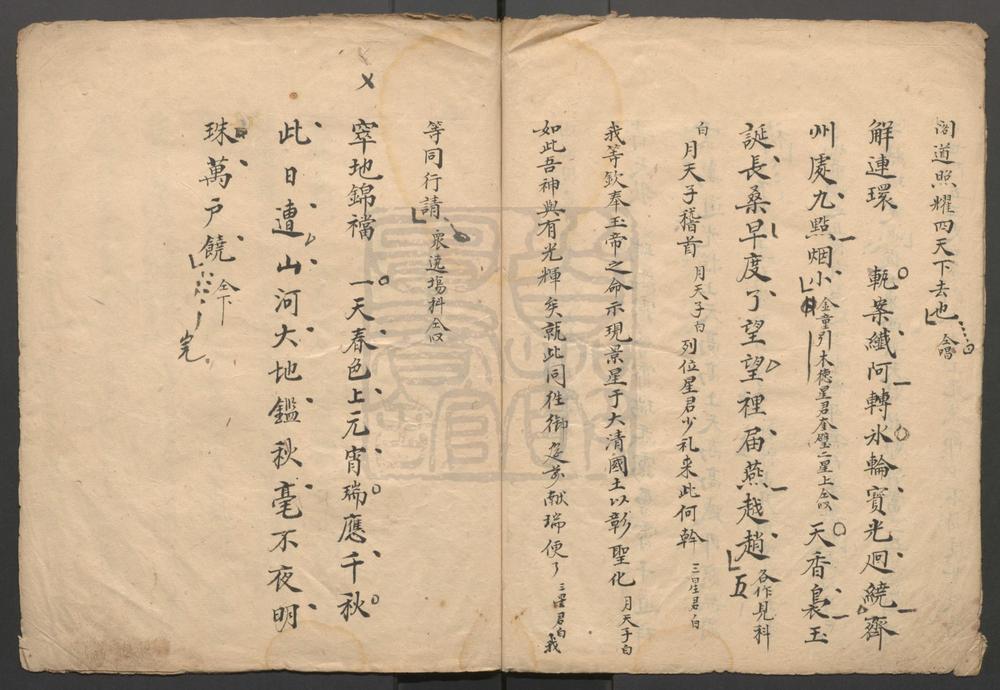 阁道照耀四天下去也 仝唱
解連環 軏業纖阿轉氷輪寳光廻繞齊
州處九點烟小 金童引木德星君奎璧二星上仝叹 天香裊玉
誕長桑早度了望望裡届燕越趙 各作見科
白 月天子稽首 月天子白 列位星君少礼来此何幹 三星君白
我等欽奉玉帝之命示現景星于大清國土以彰聖化 月天子白
如此吾神與有光輝矣就此同徃御筵前献瑞便了 三星君白 我
等同行請 衆遶塲科仝叹
窣地錦襠 一天春色上元宵瑞應千秋
此日遭山河大地鑑秋毫不夜明
珠萬户饒 仝下
完